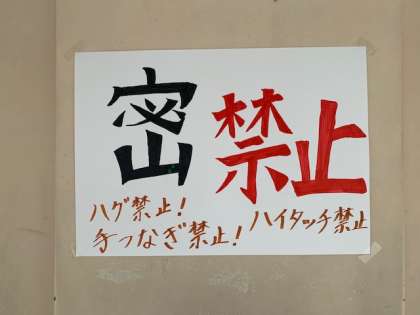 密禁止
ハグ禁止!
手つなぎ禁止!
ハイタッチ禁止